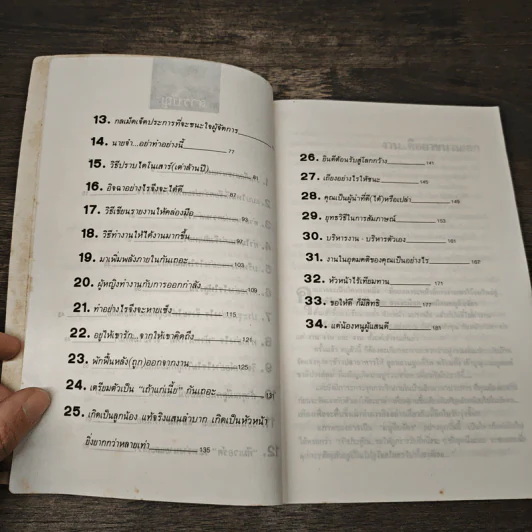 สารบัญ
13. กลเม็ดเจ็ดประการที่จะชนะใจผู้จัดการ
14. นายจ๋า...อย่าทำอย่างนี้ 77
15. วิธีปราบไดโนเสาร์(เต่าล้านปี) 81
16. อิจฉาอย่างไรจึงจะได้ดี 87
17. วิธีเขียนรายงานให้คล่องมือ 93
18. วิธีทำงานให้ได้งานมากขึ้น 97
19. มาเพิ่มพลังภายในกันเถอะ 103
20. ผู้หญิงทำงานกับการออกกำลัง 109
21. ทำอย่างไรจึงจะหายเซ็ง 115
22. อยู่ให้เขารัก...จากให้เขาคิดถึง 121
23. พักฟื้นหลัง(ถูก)ออกจากงาน 125
24. เตรียมตัวเป็น "เถ้าแก่เนี้ย" กันเถอะ 131
25. เกิดเป็นลูกน้อง แท้จริงแสนลำบาก เกิดเป็นหัวหน้า
ยิ่งยากกว่าหลายเท่า 135
26. ยินดีต้อนรับสู่โลกกว้าง 141
27. เถียงอย่างไรให้ชนะ 145
28. คุณเป็นผู้นำที่ดี(ได้)หรือเปล่า 149
29. ยุทธวิธีในการสัมภาษณ์ 155
30. บริหารงาน - บริหารตัวเอง 161
31. งานในอุดมคติของคุณเป็นอย่างไร 167
32. หัวหน้าไร้เทียมทาน 171
33. ขอให้ดี ก็มีสิทธิ 177
34. แด่น้องหนูผู้แสนดี 181